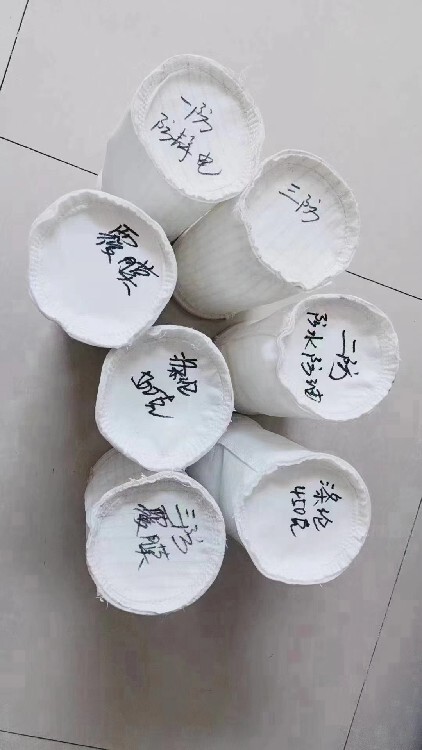 一防
防静电
三防
覆膜
二防
防水防油
涤纶
500克
涤纶
450克
三防
覆膜